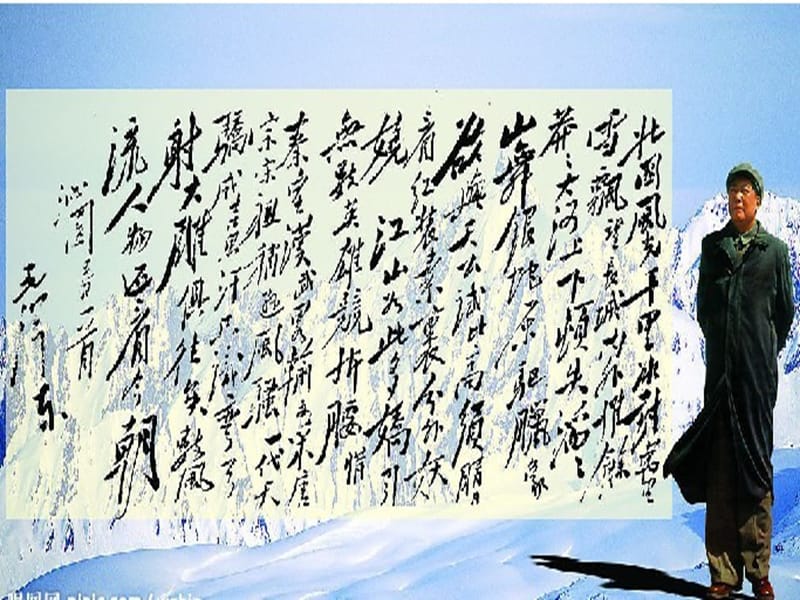 北国風光千里冰封萬里
雪飄望長城内外惟餘
莽〻大河上下頓失滔〻
山舞銀蛇原驰臘象
欲與天公試比高須晴日
看红装素裹分外妖
嬈 江山如此多嬌引
無數英雄競折腰惜
秦皇漢武略輸文采唐
宗宋祖稍遜風騷一代天
驕成吉思汗只識彎弓
射大雕俱往矣數風
流人物还看今朝
沁園春一首
毛泽东
昵图网 nipic.com/